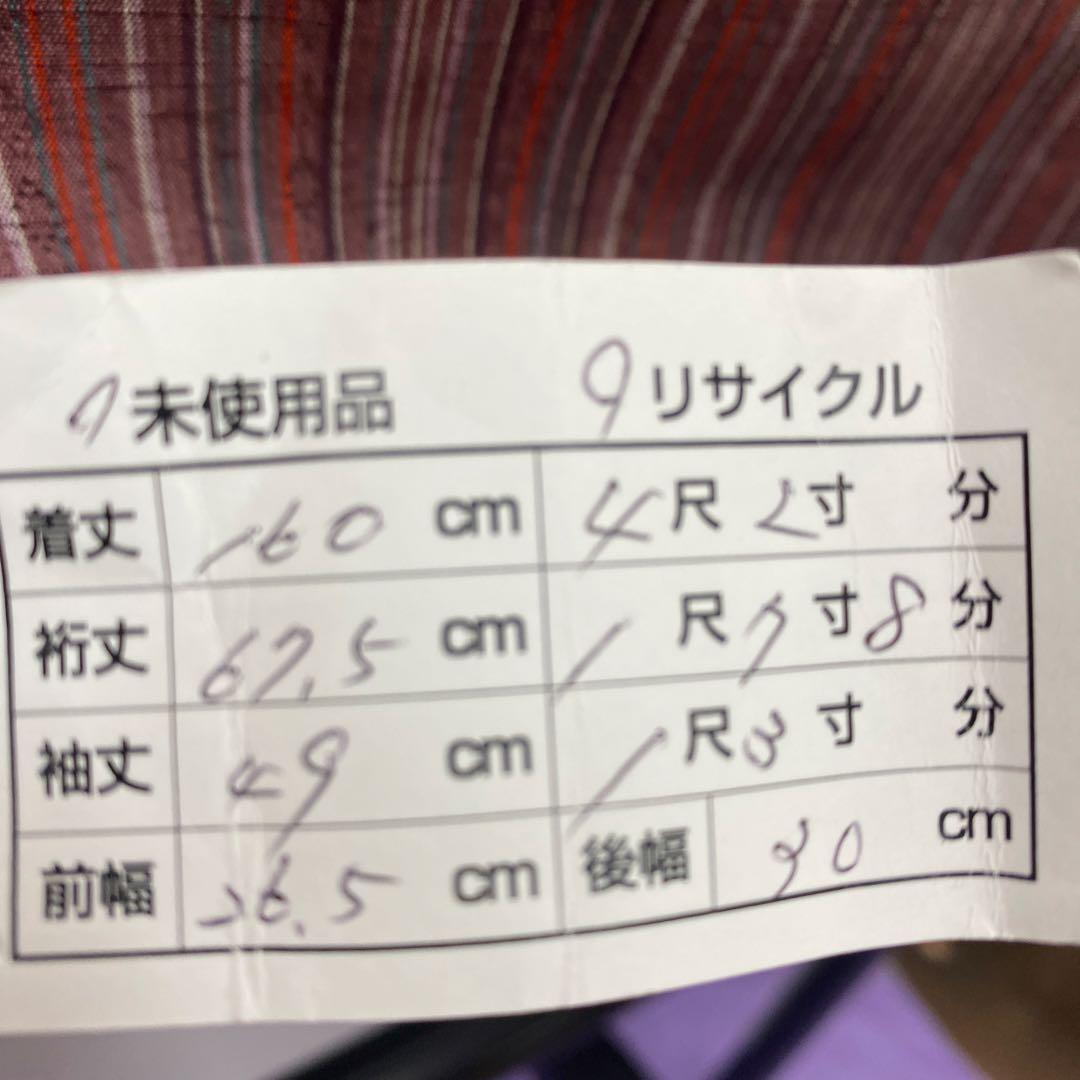 7 未使用品 9 リサイクル
着丈 160 cm 4 尺 2 寸 分
裄丈 67.5 cm 1 尺 7 寸 8 分
袖丈 49 cm 1 尺 3 寸 分
前幅 26.5 cm 後幅 30 cm